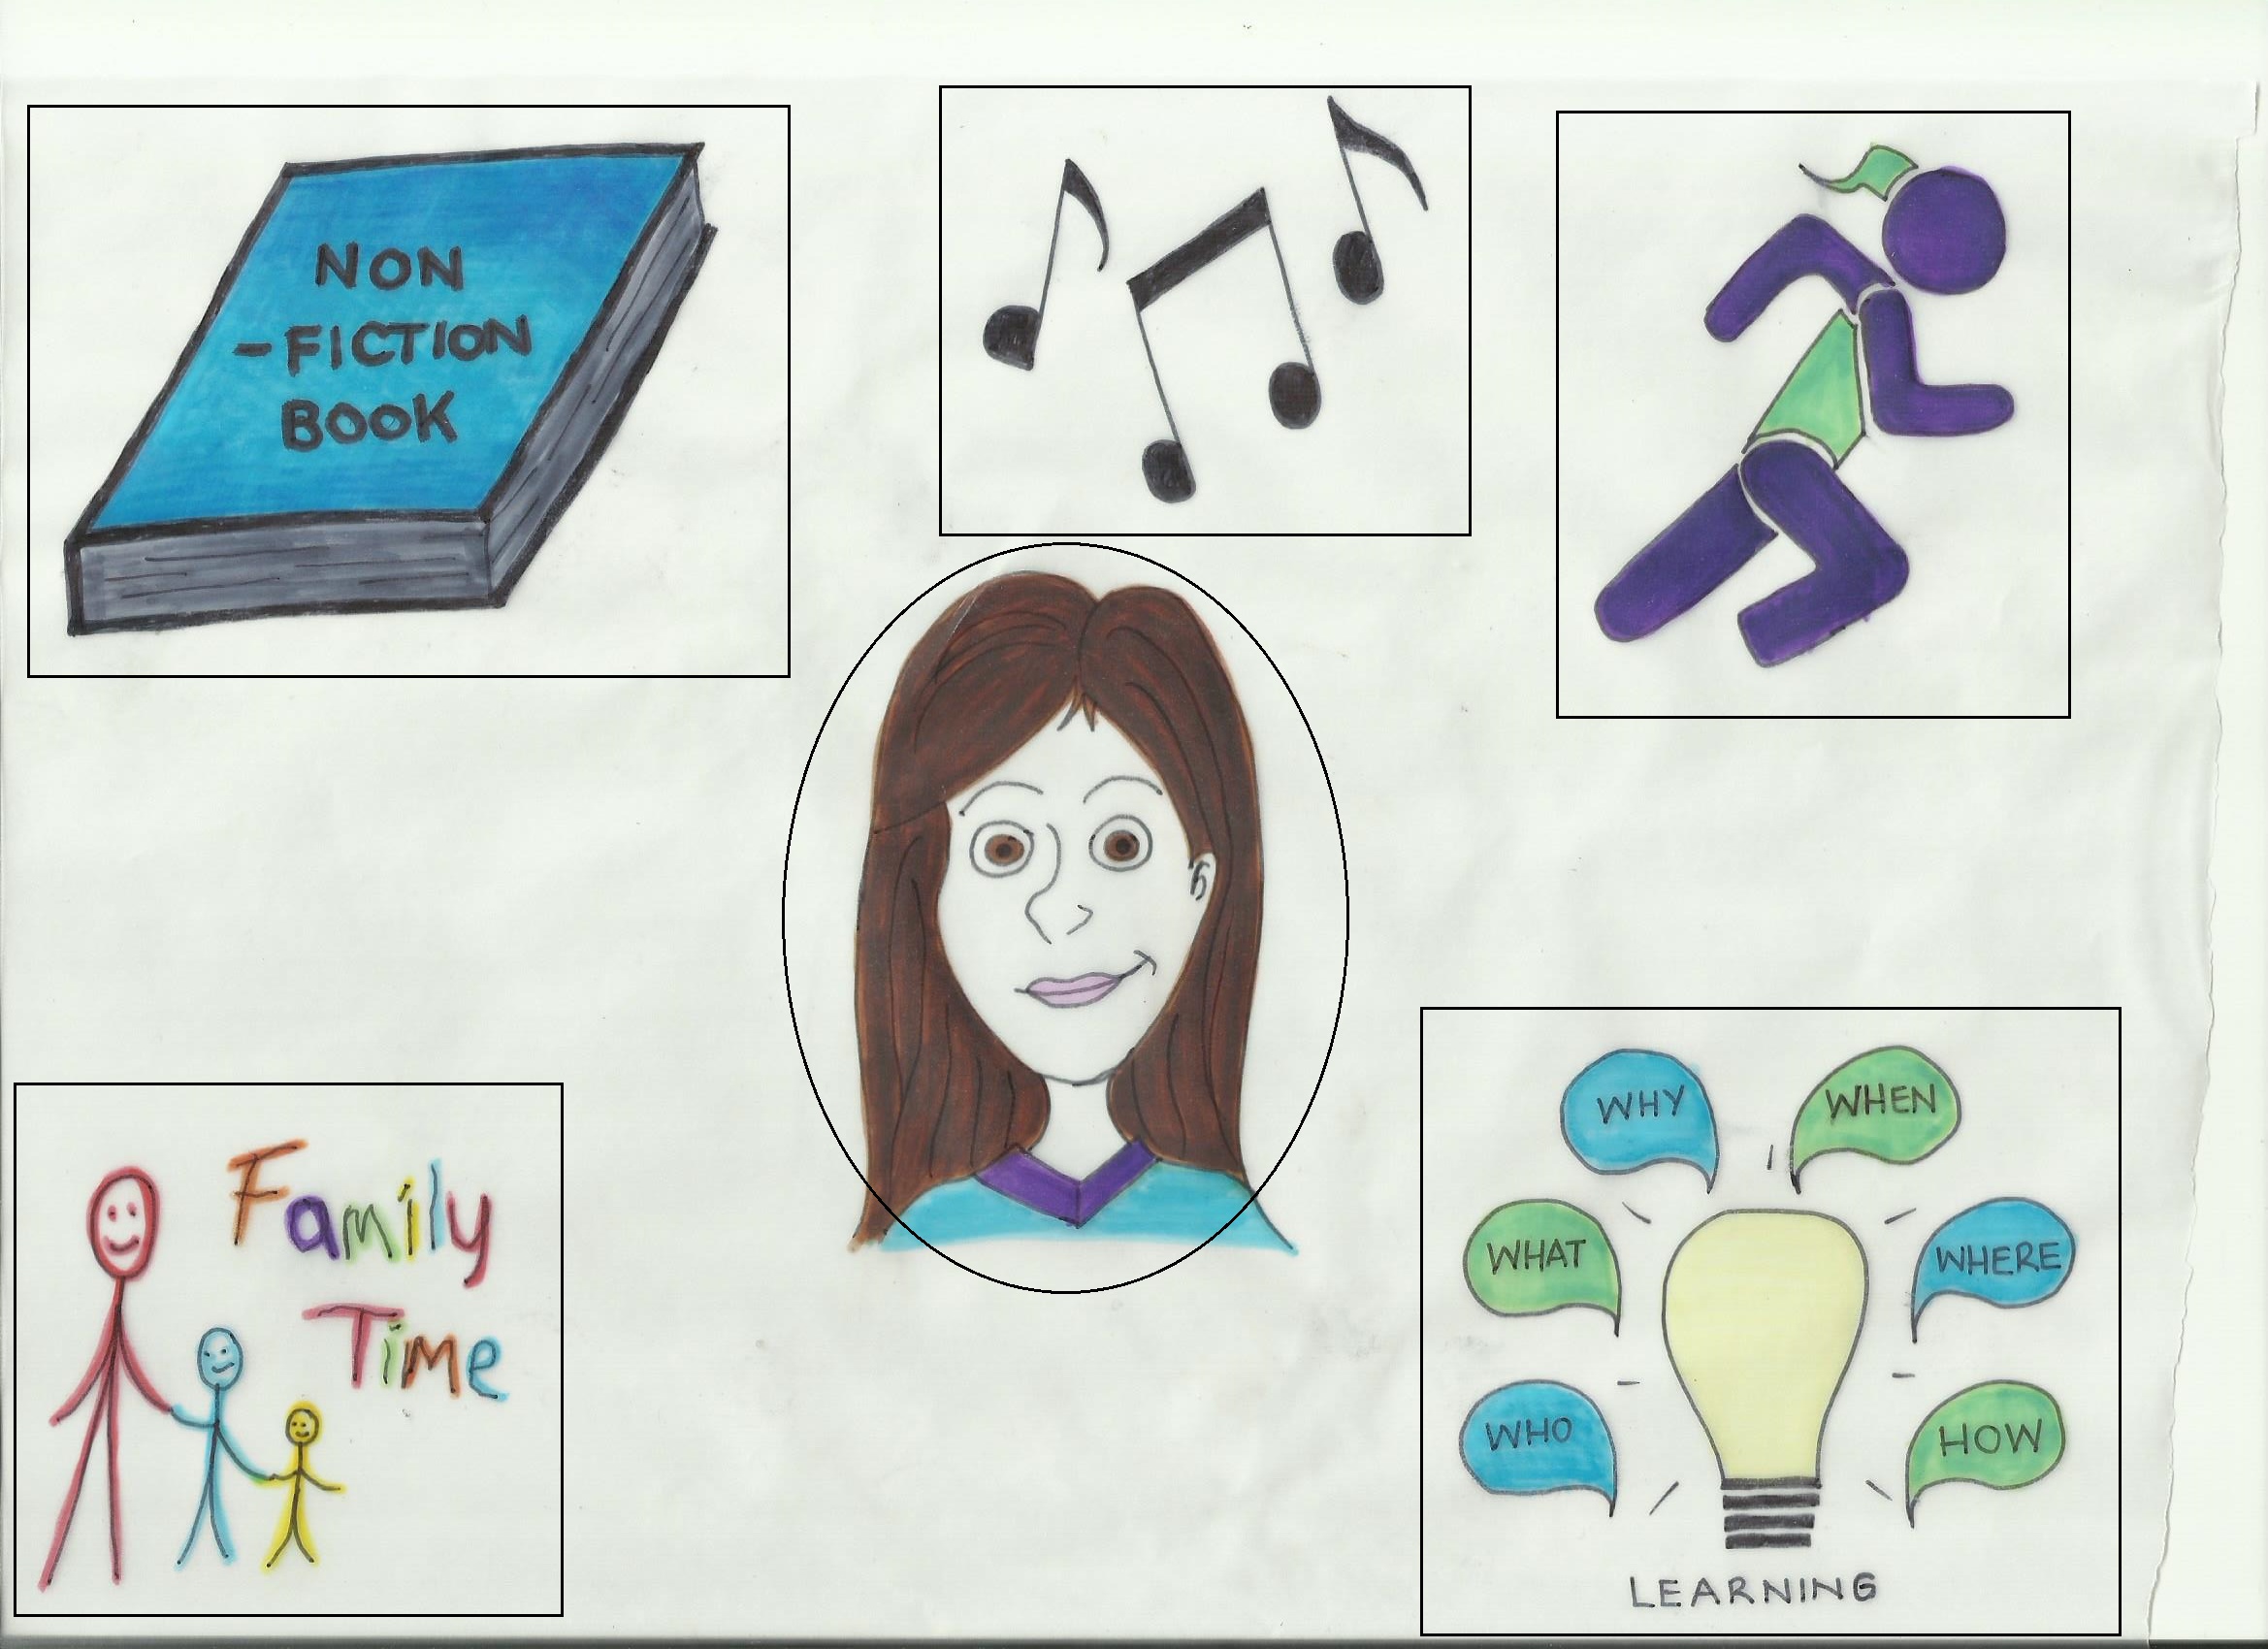 NON
-FICTION
BOOK
Family
Time
WHY
WHEN
WHAT
WHERE
WHO
HOW
LEARNING